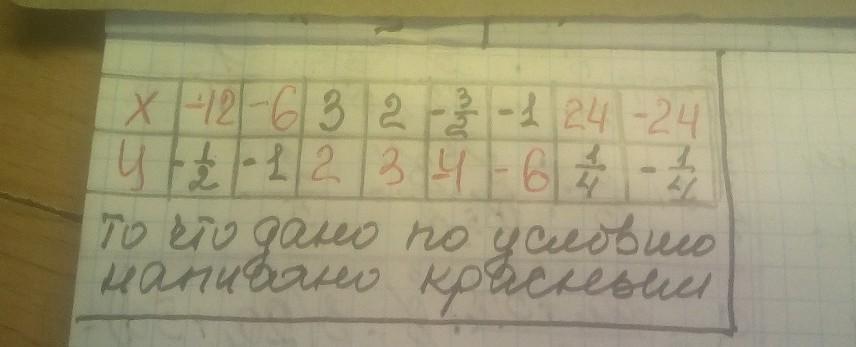 x -12 -6 3 2 -3/2 -1 24 -24
y -1/2 -1 2 3 -4 -6 1/4 -1/4
то что дано по условию
написано красным